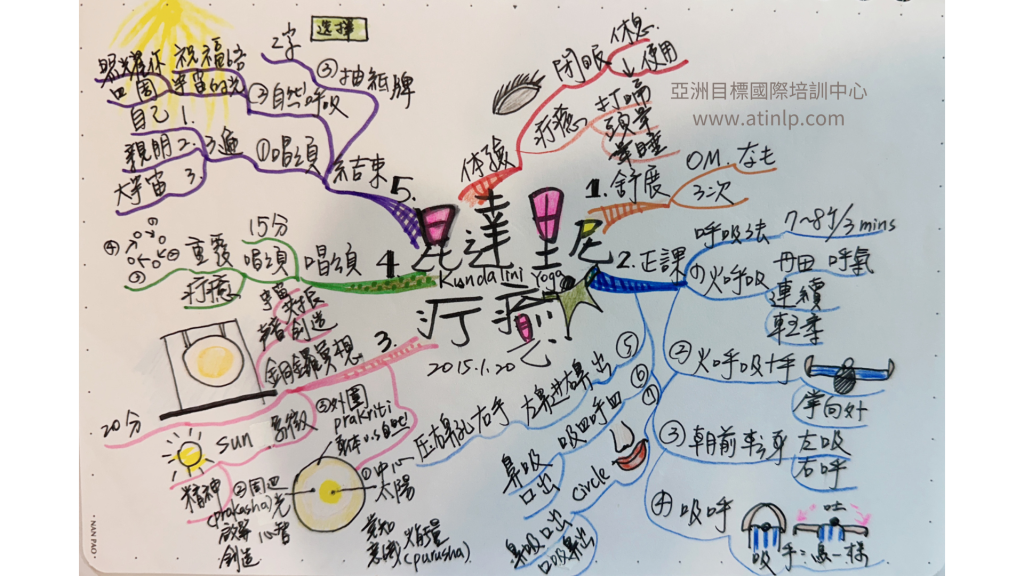 選擇
2字
③抽紙牌
祝福的
宇宙的光
照光著你
口圍
②自然呼吸
自己 1.
親朋 2.
大宇宙 3.
3遍
①唱頌
結束
5.
体驗
閉眼
休息
↓使用
疗癒
打嗝
頭暈
暈睡
亞洲目標國際培訓中心
www.atinlp.com
1.舒展
OM.なも
3次
昆達里尼
Kundalini Yoga
疗癒
2015.1.20
2.正課
呼吸法
7~8分/3 mins
①火呼吸
丹田 呼氣
連續
輕柔
②火呼吸+手
掌向外
③朝前転身
左吸
右呼
④吸呼
吸
吐
手:鳥一樣
⑤
壓右鼻孔右手
左鼻進右鼻出
⑥
吸四呼四
鼻吸
口出
⑦
circle
鼻吸口出
口吸鼻出
4.唱頌
15分
重覆
唱頌
疗癒
①
②
③
④
3.
宇宙共振
聲音創造
銅鑼冥想
20分
象徵
sun
精神
①中心
太陽
覺知
意識
火能量
(purusha)
②周边
(prakasha)光
啟蒙 心智
創造
③外圍
prakriti
NAN PAO